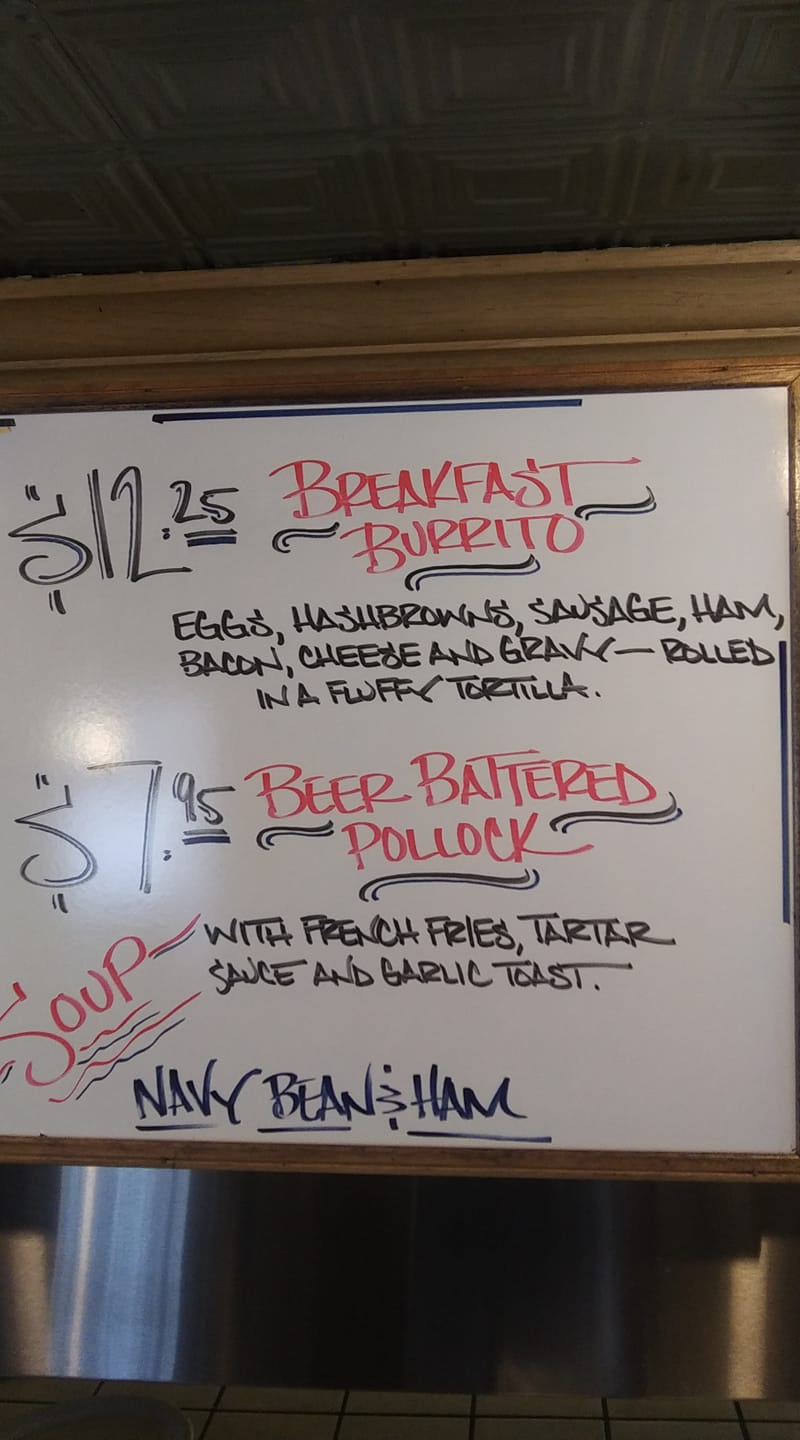 $12.25 BREAKFAST
BURRITO
EGGS, HASHBROWNS, SAUSAGE, HAM,
BACON, CHEESE AND GRAVY — ROLLED
IN A FLUFFY TORTILLA.
$7.95 BEER BATTERED
POLLOCK
WITH FRENCH FRIES, TARTAR
SAUCE AND GARLIC TOAST.
SOUP
NAVY BEAN & HAM